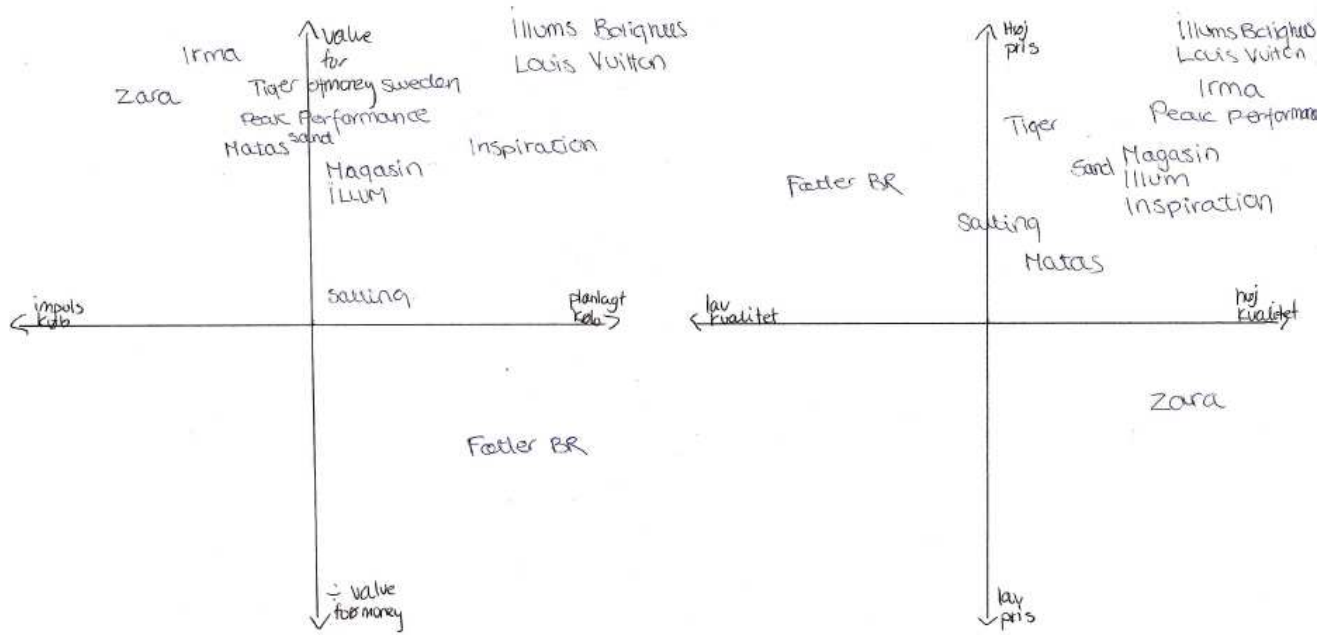 value
for
money
İllums Bolighus
Louis Vuitton
Irma
Zara
Tiger of sweden
Peak Performance
Matas
sand
Inspiration
Magasin
İLLUM
Salling
impuls
køb
planlagt
køb
Fætter BR
÷ value
for money
Høj
pris
İllums Bolighus
Louis Vuitton
Irma
Peak performance
Tiger
Sand
Magasin
İllum
Inspiration
Fætter BR
Salling
Matas
lav
kvalitet
høj
kvalitet
Zara
lav
pris